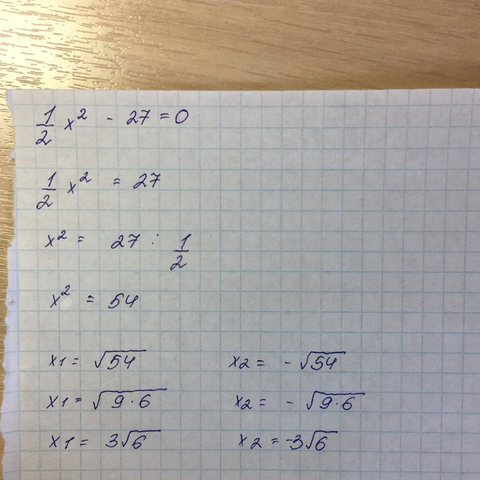 1/2 x² - 27 = 0
1/2 x² = 27
x² = 27 : 1/2
x² = 54
x1 = √54 x2 = -√54
x1 = √9·6 x2 = -√9·6
x1 = 3√6 x2 = -3√6